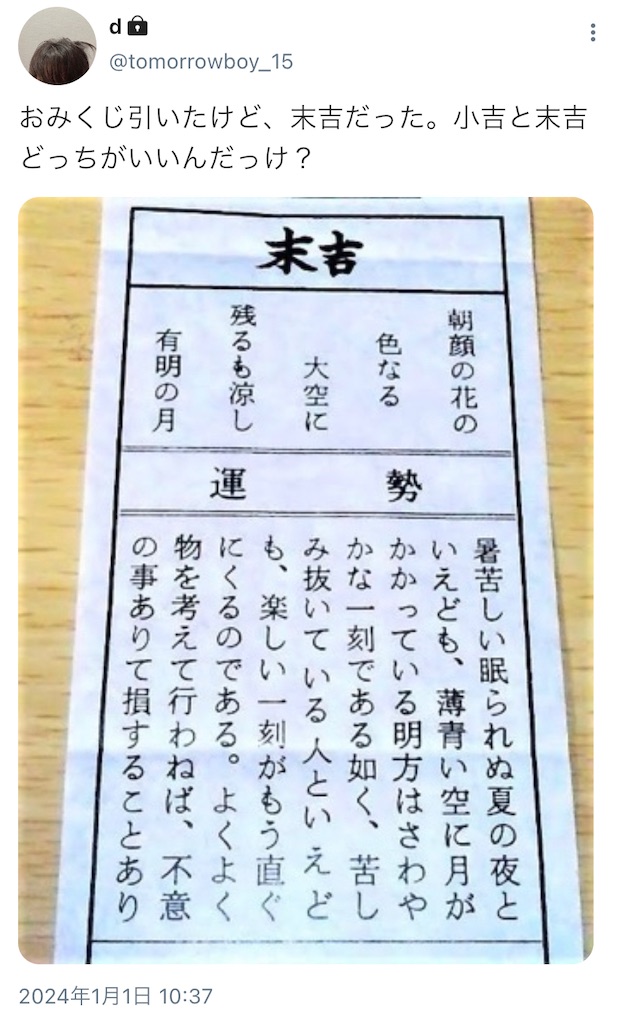 d
@tomorrowboy_15
おみくじ引いたけど、末吉だった。小吉と末吉
どっちがいいんだっけ？
末吉
朝顔の花の
色なる
大空に
残るも涼し
有明の月
運勢
暑苦しい眠られぬ夏の夜と
いえども、薄青い空に月が
かかっている明方はさわや
かな一刻である如く、苦し
み抜いている人といえど
も、楽しい一刻がもう直ぐ
にくるのである。よくよく
物を考えて行わねば、不意
の事ありて損することあり
2024年1月1日 10:37